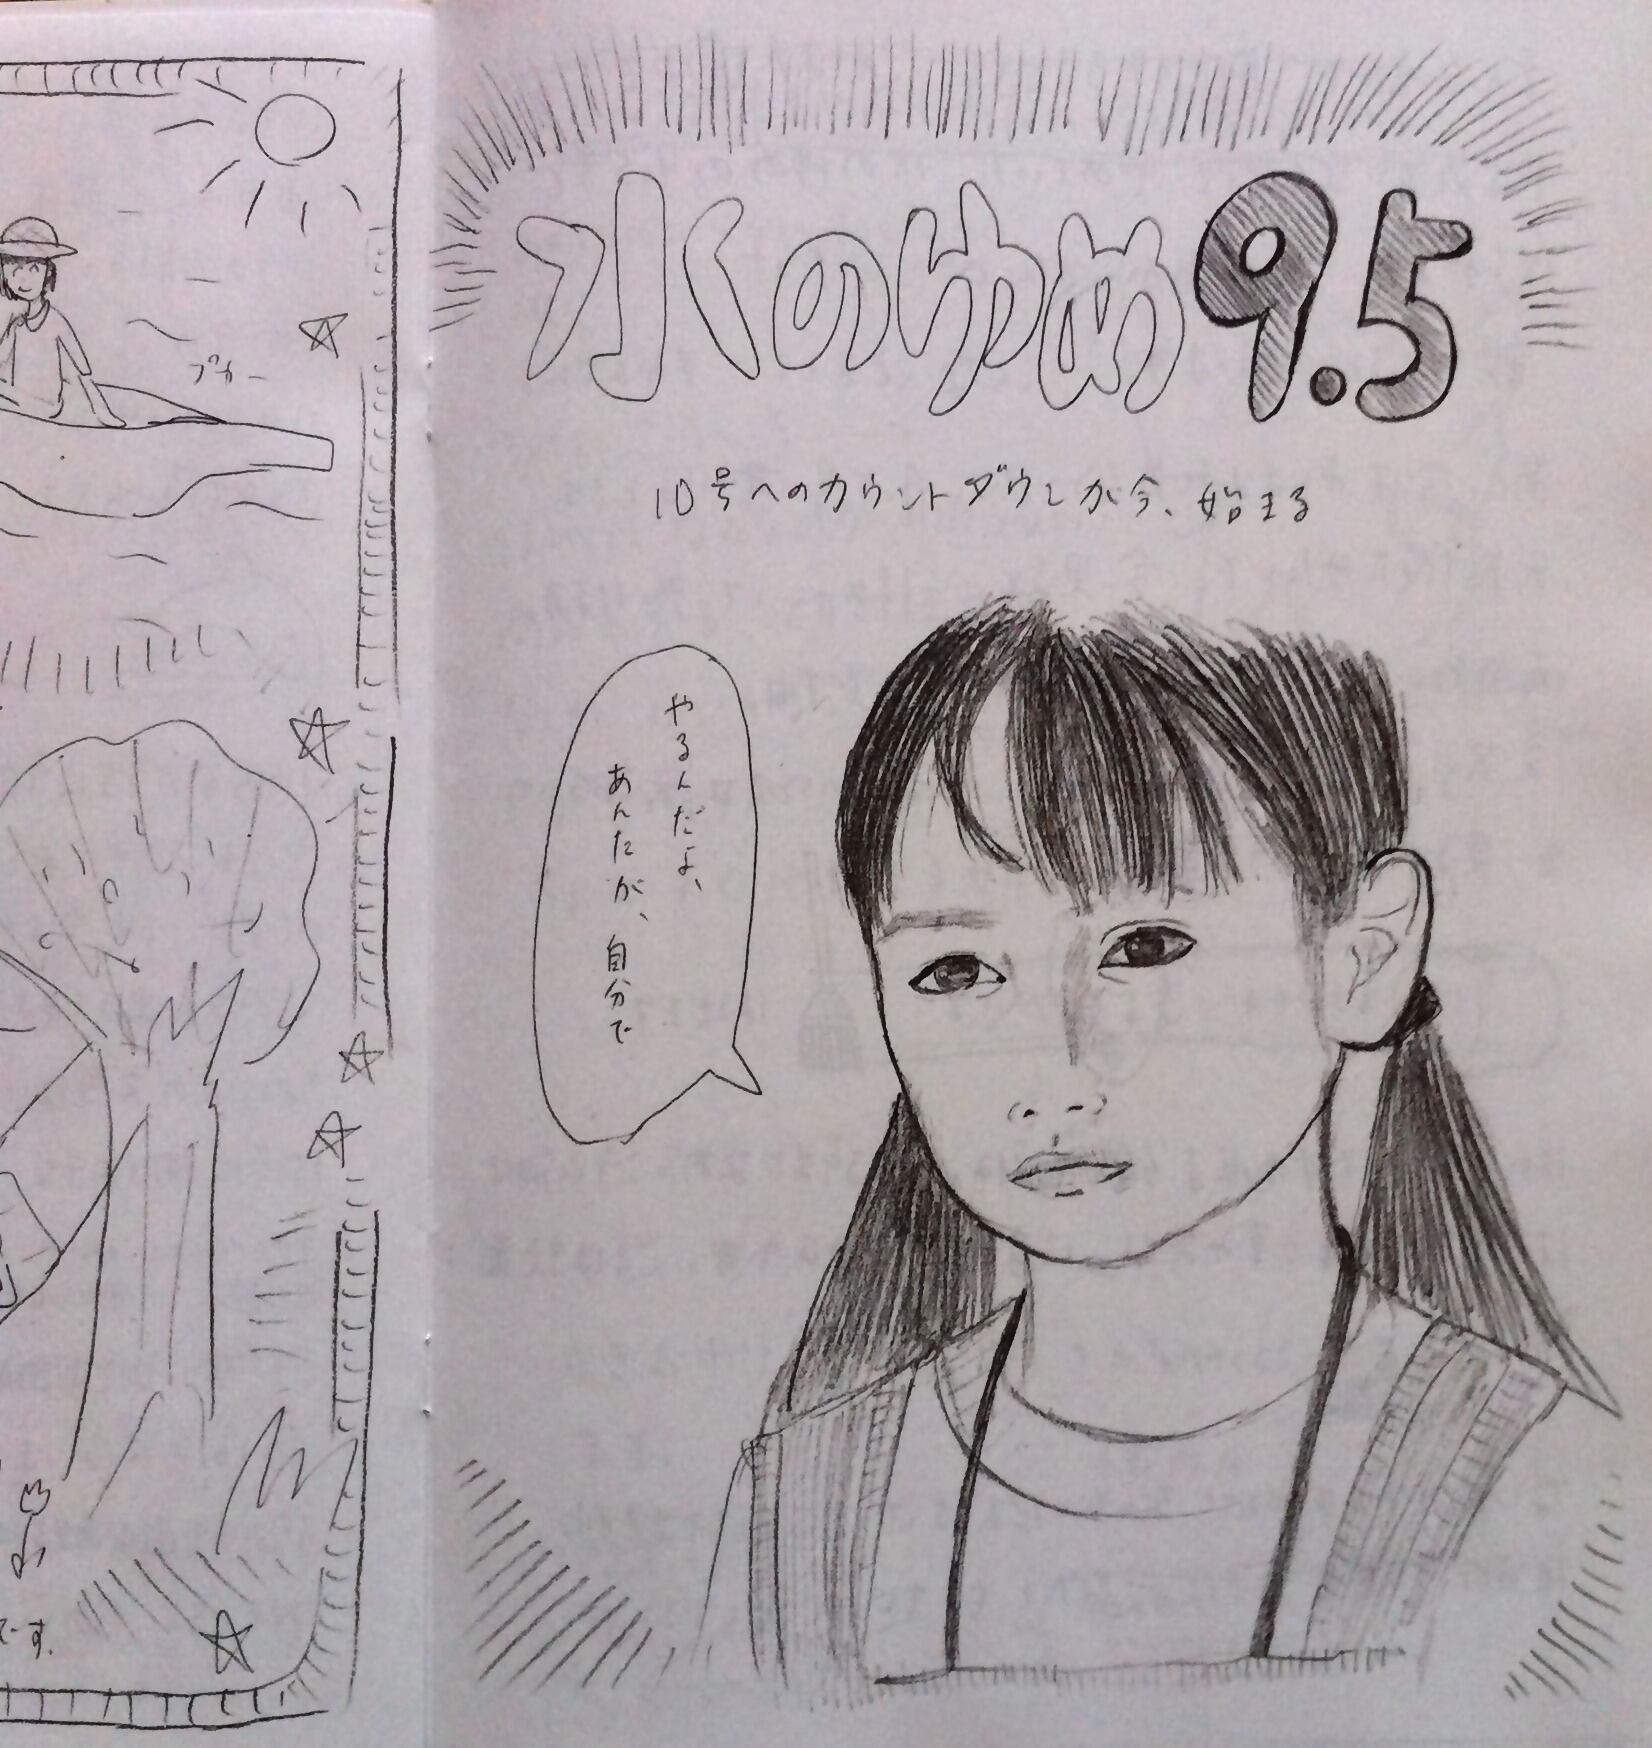 水のゆめ9.5
10号へのカウントダウンが今、始まる
やるんだよ、
あんたが、自分で
プカー
です。